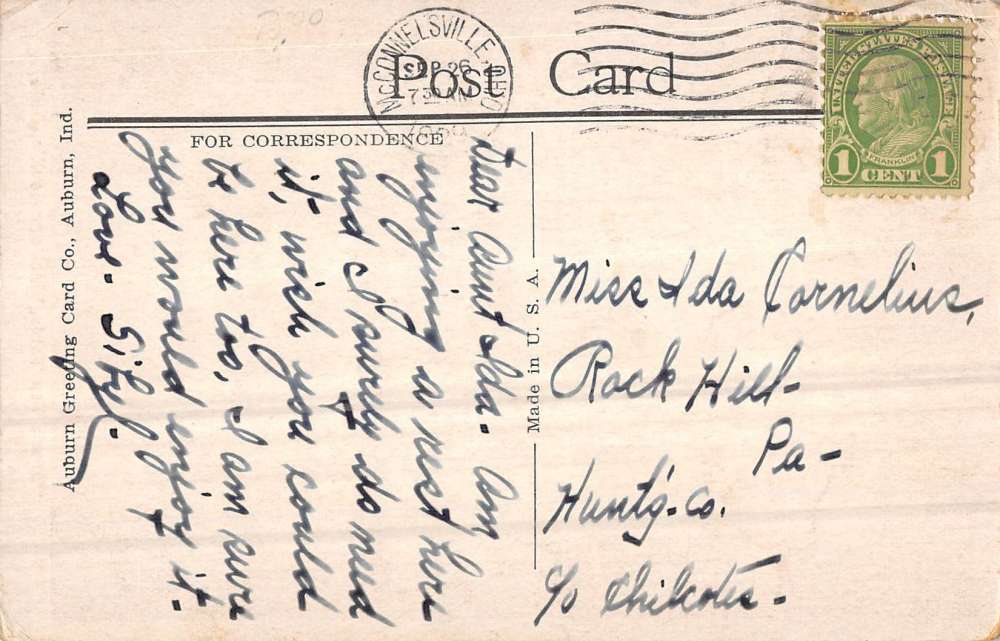 McCONNELSVILLE, OHIO
SEP 26
730 AM
Post Card
UNITED STATES POSTAGE
FRANKLIN
1 CENT 1
FOR CORRESPONDENCE
Dear Aunt Ida - Am
enjoying a rest here
and I surely do need
it, wish you could
be here too, I am sure
you would enjoy it -
Love - Sibyl -
Auburn Greeting Card Co., Auburn, Ind.
Made in U. S. A.
Miss Ida Cornelius,
Rock Hill -
Pa -
Hunt'g - Co.
c/o Chilcotes -